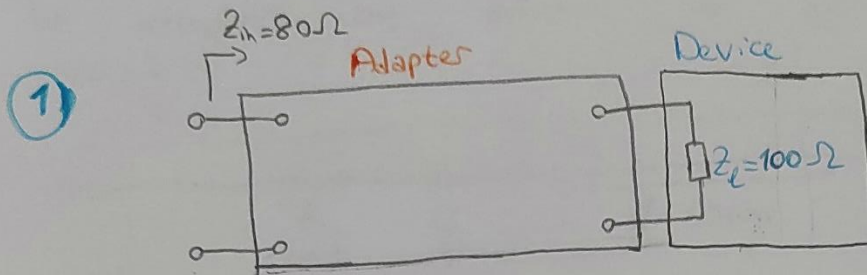 Zin=80Ω
Adapter
Device
1
Zℓ=100Ω